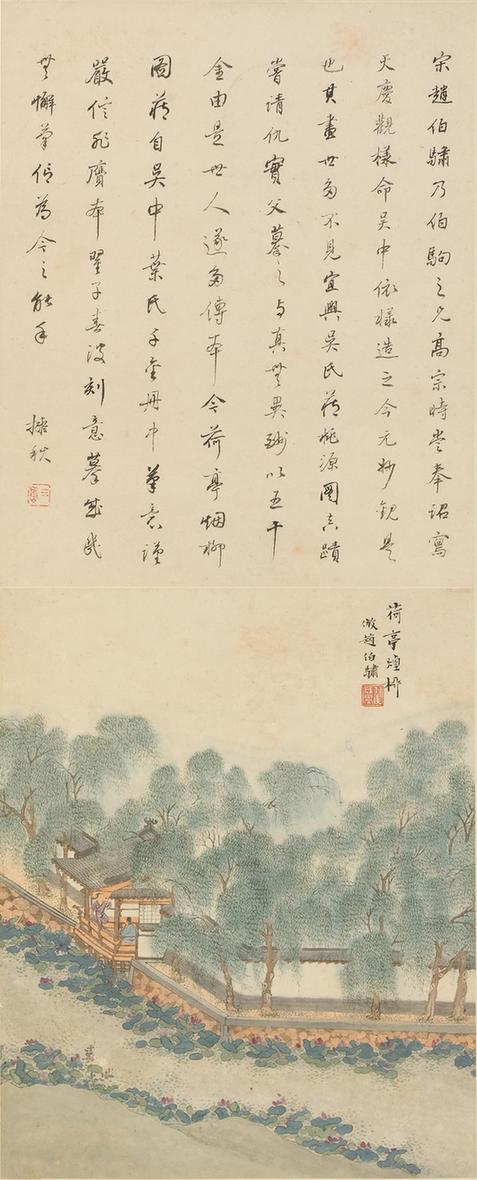 宋趙伯驌乃伯駒之兄高宗時嘗奉詔寫
天慶觀樣命吳中依樣造之今元妙觀是
也其畫世多不見宜興吳氏藏桃源圖真蹟
嘗請仇實父摹之与真無異酬以五十
金由是世人遂多傳本今荷亭烟柳
圖藏自吳中葉氏千金冊中筆意謹
嚴信非贗本翠子春波刻意摹成我
無懈筆信為今之能手
擁秋
荷亭煙柳
倣趙伯驌